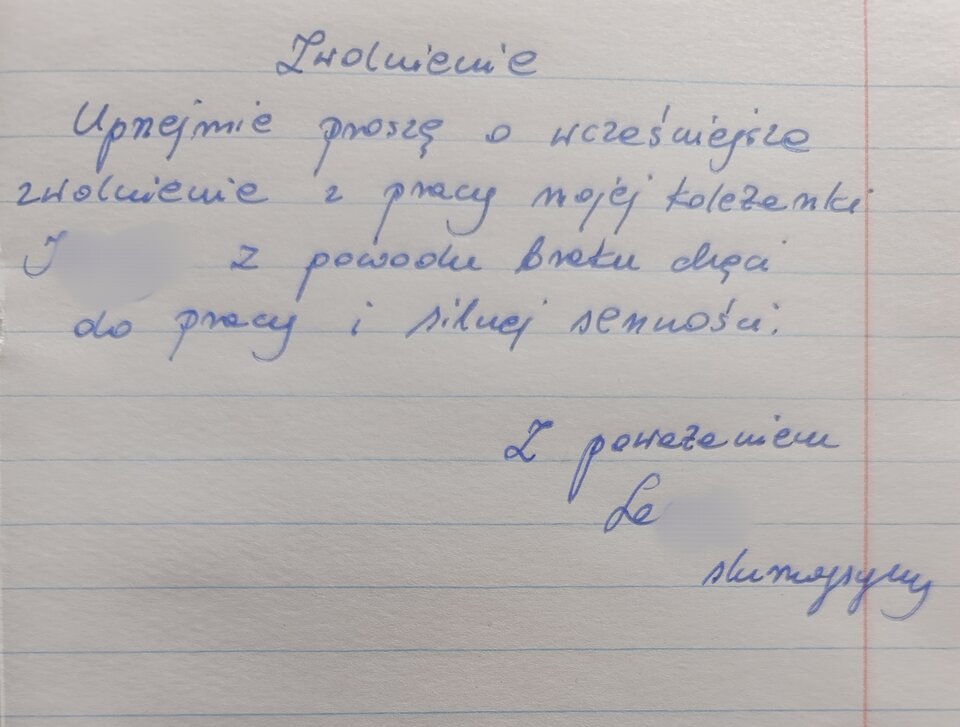 Zwolnienie
Uprzejmie proszę o wcześniejsze
zwolnienie z pracy mojej koleżanki
J z powodu braku chęci
do pracy i silnej senności.
Z poważaniem
Le